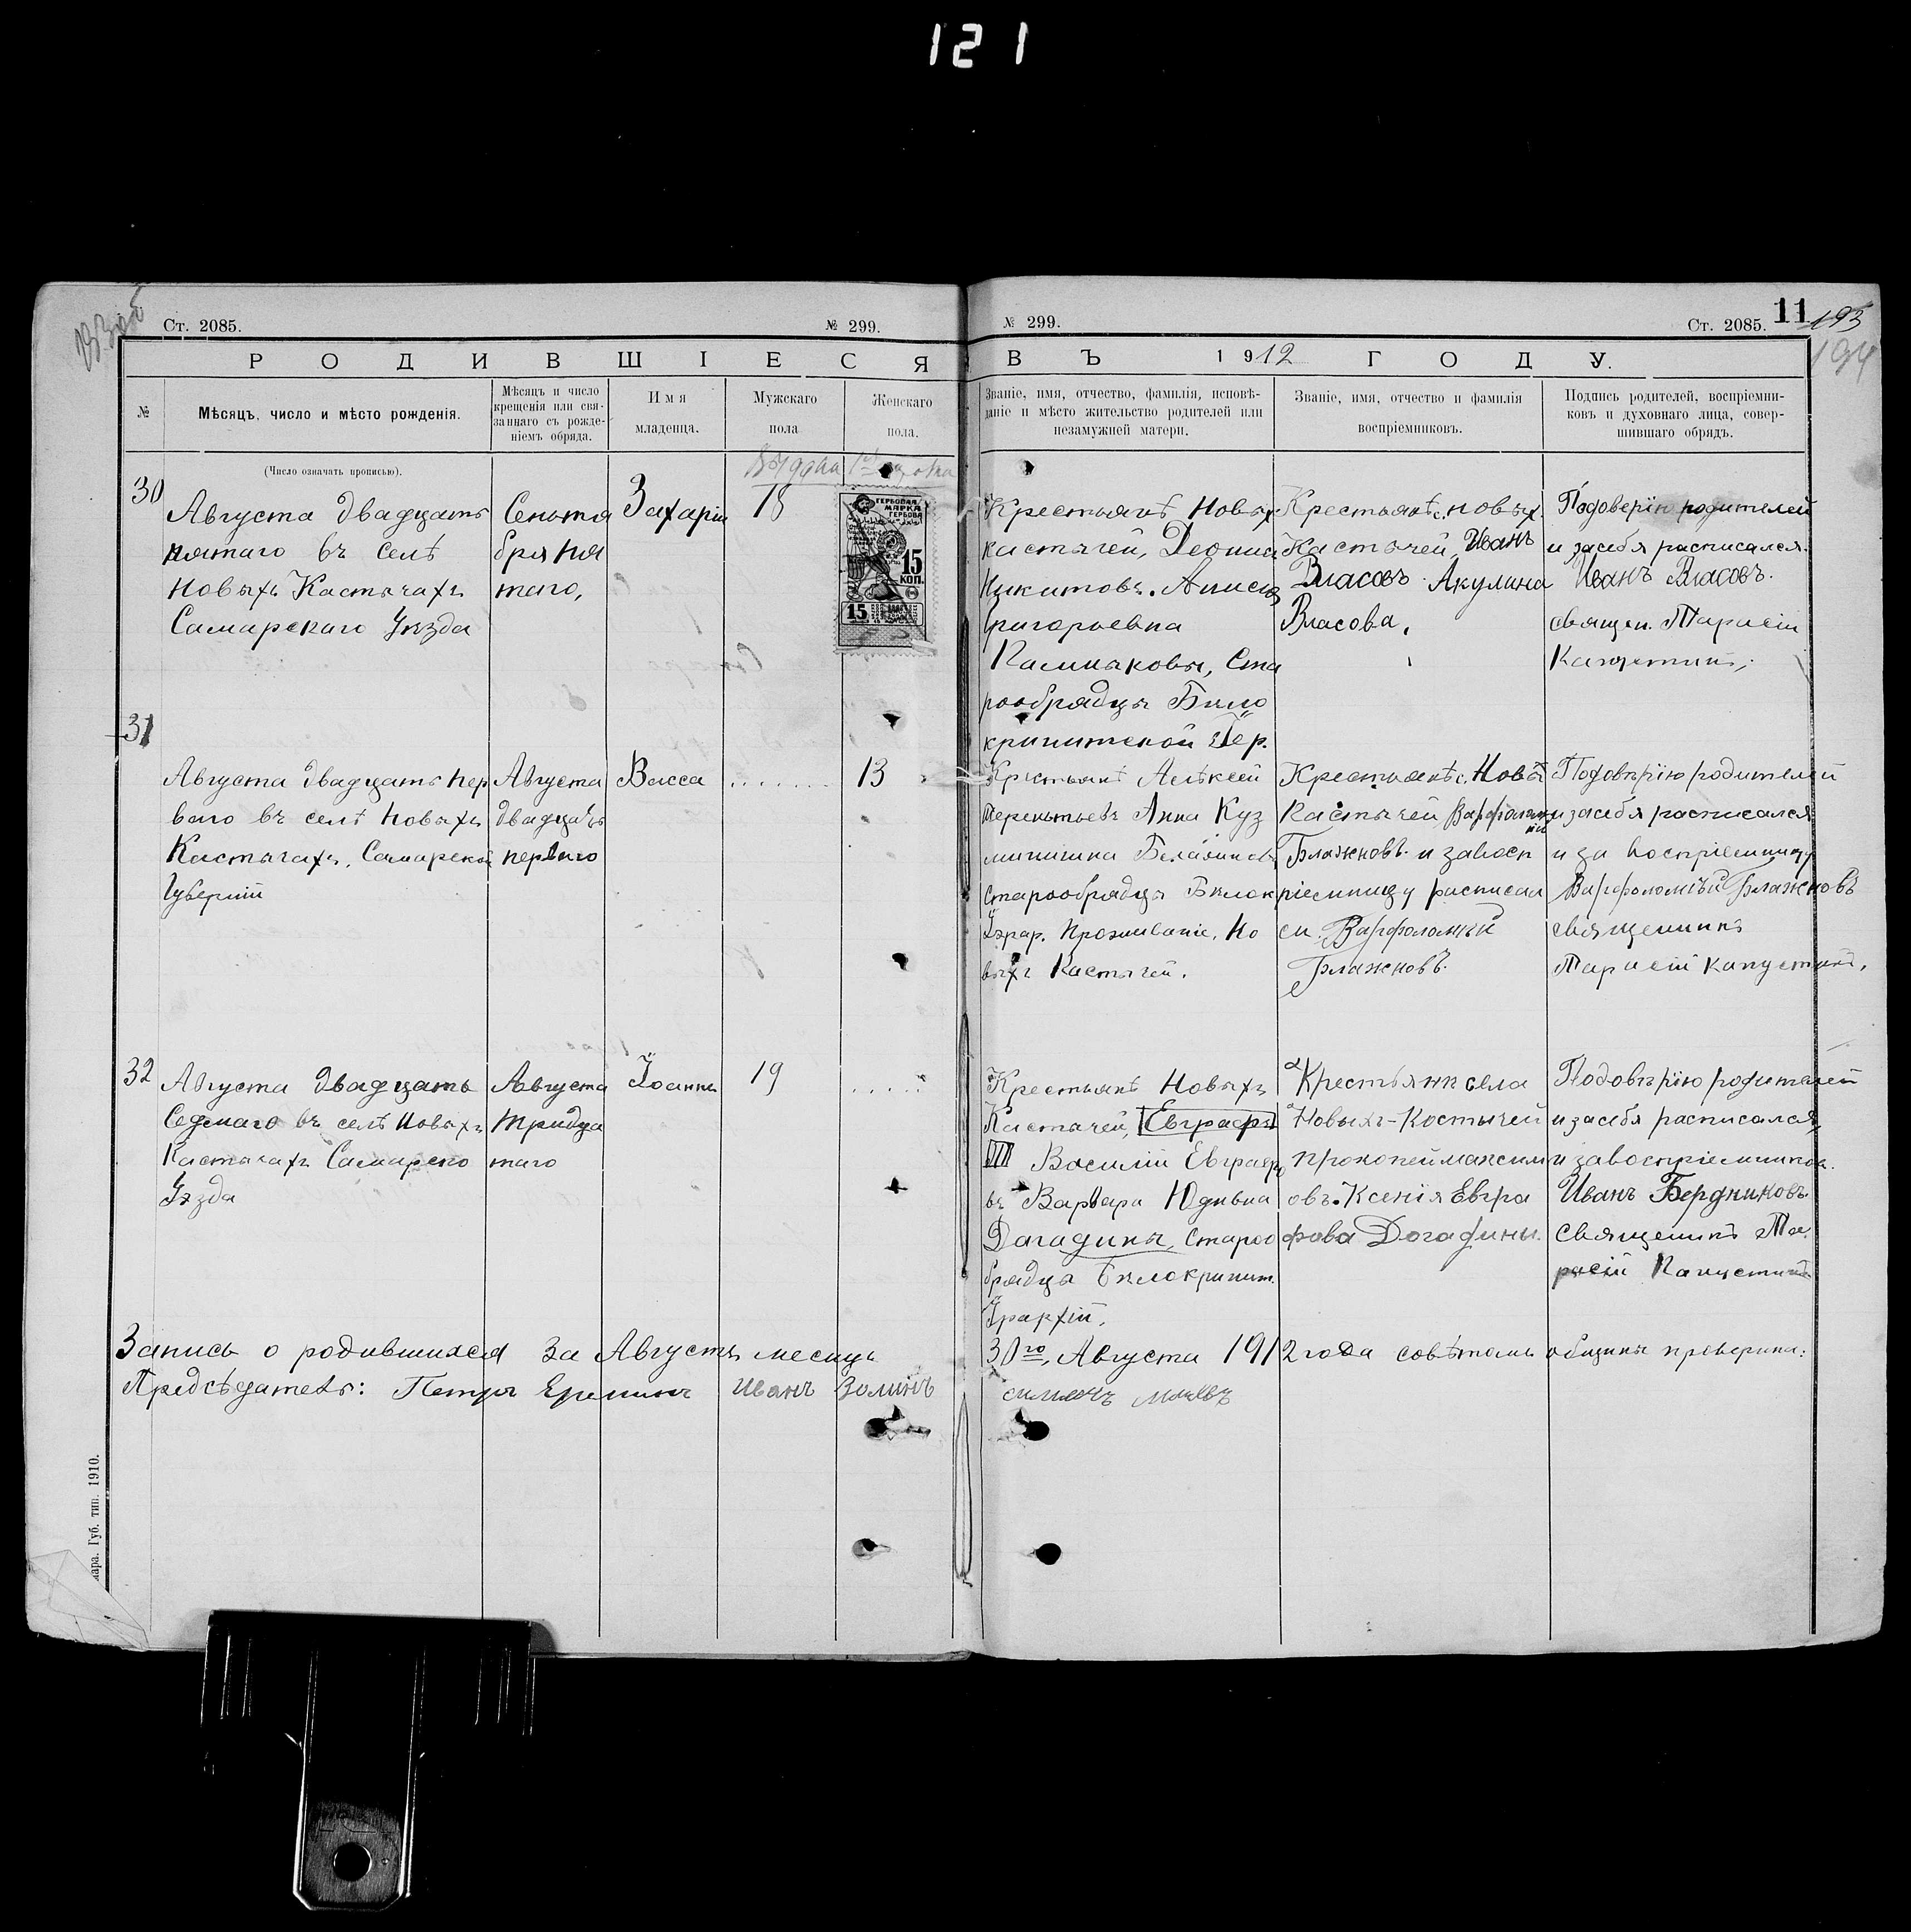 121
Ст. 2085.
№ 299.
№ 299.
Ст. 2085.
11
193
194
РОДИВШІЕСЯ
ВЪ 1912 ГОДУ.
№
Мѣсяцъ, число и мѣсто рожденія.
Мѣсяцъ и число
крещенія или свя-
заннаго съ рожде-
ніемъ обряда.
Имя
младенца.
Мужскаго
пола
Женскаго
пола.
Званіе, имя, отчество, фамилія, исповѣ-
даніе и мѣсто жительство родителей или
незамужней матери.
Званіе, имя, отчество и фамилія
воспріемниковъ.
Подпись родителей, воспріемни-
ковъ и духовнаго лица, совер-
шившаго обрядъ.
(Число означать прописью).
30
Августа двадцать
пятаго въ селѣ
новыхъ Костычахъ
Самарскаго Уѣзда
Сентя
бря пя
таго,
Захарій
18
ГЕРБОВАЯ
МАРКА
15
КОП.
15
Крестьянѣ Новых
кастычей, Леонид
Никитовъ. Аниси
Григорьевна
Калмыковы, Ста
рообрядцы Бѣло
криницской Іер.
Крестьянѣ с. новых.
Кастычей, Иванъ
Власовъ Акулина
Власова,
Подоверію родителей
и засебя расписался.
Иванъ Власовъ.
священ. Тарасій
Капустинъ,
31
Августа двадцать пер
ваго въ селѣ Новыхъ
Кастычахъ, Самарской
Губерніи
Августа
двадцать
перваго
Васса
13
Крестьянѣ Алѣксей
Терентьевъ Анна Куз
минишна
старообрядцы Бѣлок
Іэрар. Проживаніе. Но
выхъ Кастычей.
Крестьянѣ с. Новы
Кастычей, Варфоломѣ
й
Блажновъ. и завосп
ріемницу расписал
ся. Варфоломѣй
Блажновъ.
Подовѣрію родителей
и засебя расписался
и за воспріемницу
Варфоломѣй Блажновъ
священникъ
Тарасій Капустинъ,
32
Августа двадцать
Седмаго въ селѣ Новыхъ
Кастычахъ Самарско
Уѣзда
Августа
Тридца
таго
Іоаннъ
19
Крестьянѣ Новыхъ
Кастычей, Евграфъ
Василій Евграфо
въ Варвара Юдивна
Дагадины, Староо
брядцы Бѣлокриниц.
Іерархіи,
Крестьяне села
Новыхъ-Костычей
Прокопей максим
овъ. Ксенія Евгра
фова Догадины.
Подовѣрію родителей
и засебя расписался,
и завоспріемников.
Иванъ Бердниковъ.
Священникъ Та
расій Капустинъ
Запись о родившихся за Августъ месяцъ 30го, Августа 1912 года совѣтомъ общины проверина:
Предсѣдатель: Петръ Ереминъ Иванъ Золинъ
Губ. тип. 1910.